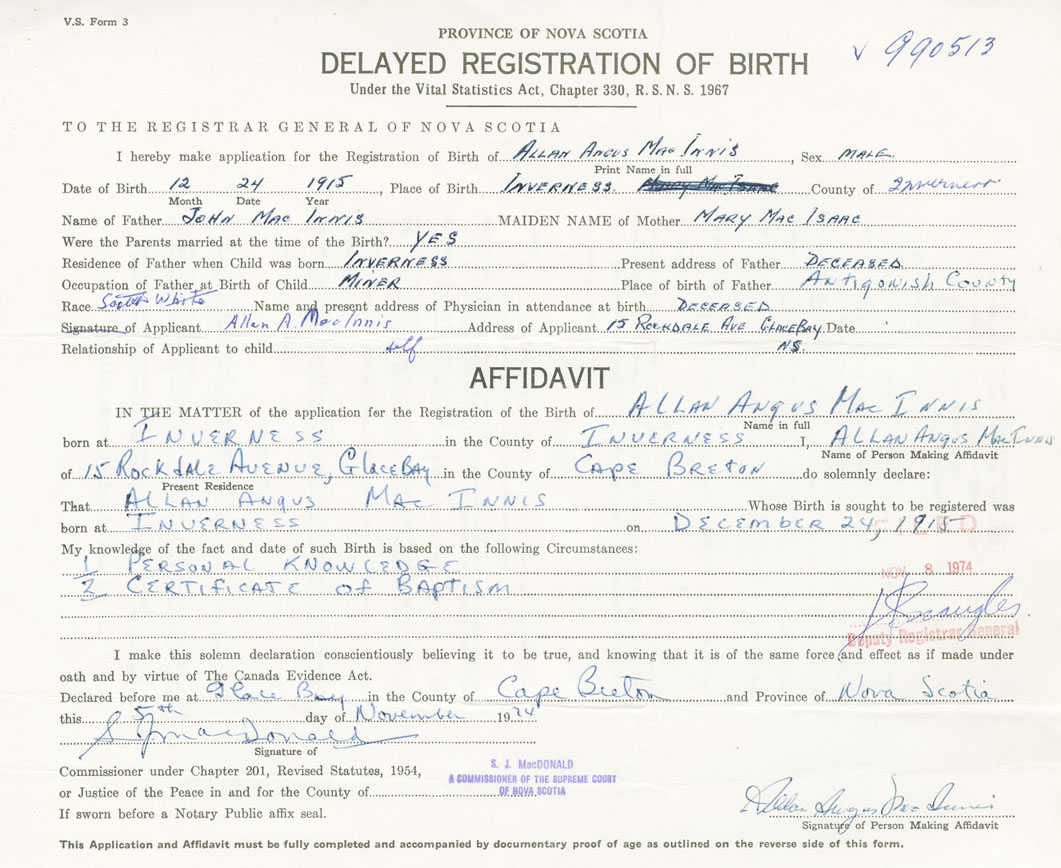 V.S. Form 3
PROVINCE OF NOVA SCOTIA
DELAYED REGISTRATION OF BIRTH
V 990513
Under the Vital Statistics Act, Chapter 330, R.S.N.S. 1967
TO THE REGISTRAR GENERAL OF NOVA SCOTIA
I hereby make application for the Registration of Birth of ALLAN ANGUS MAC INNIS, Sex MALE
Print Name in full
Date of Birth 12 24 1915, Place of Birth INVERNESS Mary Mac Isaac County of Inverness
Month Date Year
Name of Father JOHN MAC INNIS MAIDEN NAME of Mother MARY MAC ISAAC
Were the Parents married at the time of the Birth? YES
Residence of Father when Child was born INVERNESS Present address of Father DECEASED
Occupation of Father at Birth of Child MINER Place of birth of Father ANTIGONISH COUNTY
Race White Name and present address of Physician in attendance at birth DECEASED
Signature of Applicant Allan A. MacInnis Address of Applicant 15 ROCKDALE AVE GLACE BAY Date
Relationship of Applicant to child self NS.
AFFIDAVIT
IN THE MATTER of the application for the Registration of the Birth of ALLAN ANGUS MAC INNIS
Name in full
born at INVERNESS in the County of INVERNESS I, ALLAN ANGUS MACINNIS
Name of Person Making Affidavit
of 15 ROCKDALE AVENUE, GLACE BAY in the County of CAPE BRETON do solemnly declare:
Present Residence
That ALLAN ANGUS MAC INNIS Whose Birth is sought to be registered was
born at INVERNESS on DECEMBER 24, 1915
My knowledge of the fact and date of such Birth is based on the following Circumstances:
1 PERSONAL KNOWLEDGE
NOV. 8 1974
2 CERTIFICATE OF BAPTISM
Deputy Registrar General
I make this solemn declaration conscientiously believing it to be true, and knowing that it is of the same force and effect as if made under
oath and by virtue of The Canada Evidence Act.
Declared before me at Glace Bay in the County of Cape Breton and Province of Nova Scotia
this 5th day of November 1974
S J MacDonald
Signature of
Commissioner under Chapter 201, Revised Statutes, 1954,
or Justice of the Peace in and for the County of
S. J. MacDONALD
A COMMISSIONER OF THE SUPREME COURT
OF NOVA SCOTIA
If sworn before a Notary Public affix seal.
Allan Angus Mac Innis
Signature of Person Making Affidavit
This Application and Affidavit must be fully completed and accompanied by documentary proof of age as outlined on the reverse side of this form.